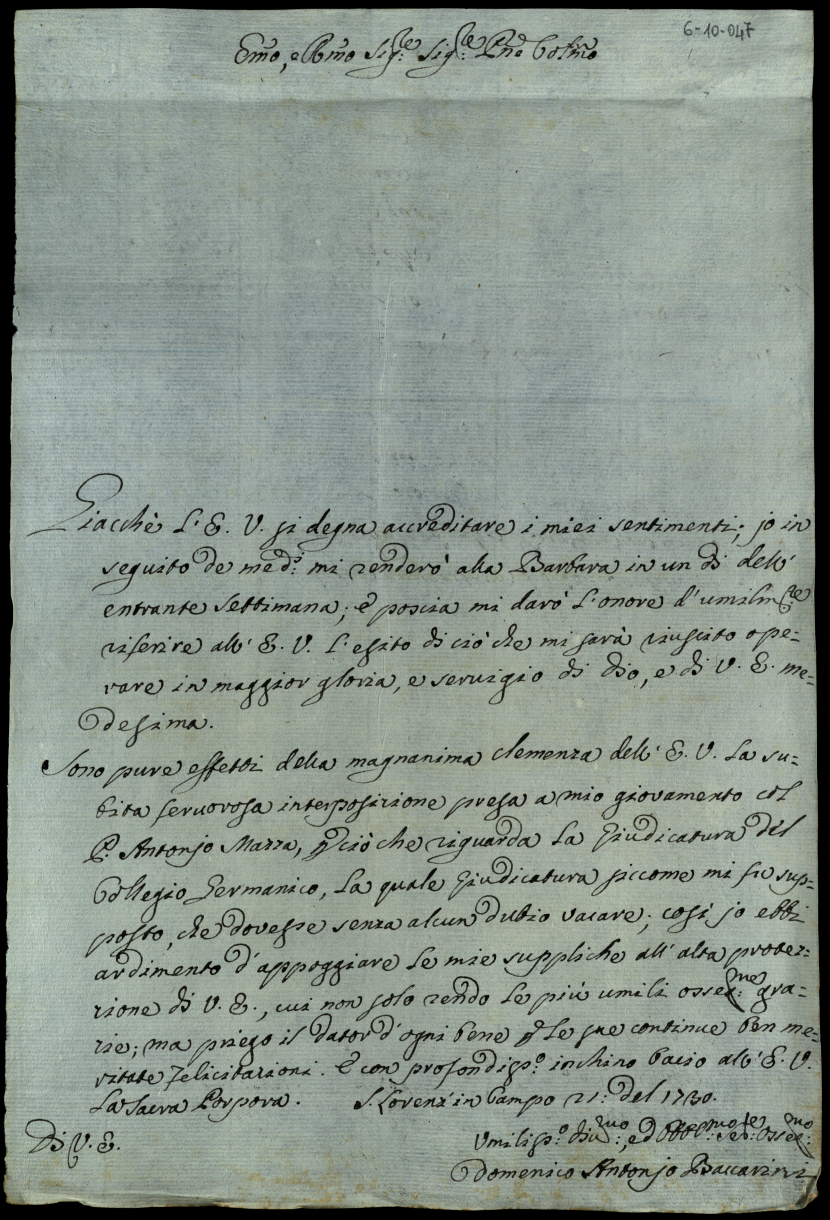 6-10-047
Emo, e Rmo Sig.re Sig.re Pne Colmo
Giacchè L'E. V. si degna accreditare i miei sentimenti; jo in
seguito de med.i mi renderò alla Barbara in un dì dell'
entrante Settimana; e poscia mi darò L'onore d'umilm.te
riferire all'E. V. L'esito di ciò che mi sarà riuscito ope=
rare in maggior gloria, e servigio di Dio, e di V. E. me=
desima.
Sono pure effetti della magnanima clemenza dell'E. V. La su=
bita fervorosa interposizione presa a mio giovamento col
P. Antonjo Mazza, p ciò che riguarda La Giudicatura del
Collegio Germanico, La quale Giudicatura siccome mi fu sup=
posto, che dovesse senza alcun dubio vacare; così jo ebbi
ardimento d'appoggiare Le mie suppliche all'alta protez=
zione di V. E., cui non solo rendo Le più umili osseq.me gra=
zie; ma priego il dator d'ogni bene p Le sue continue ben me=
ritate felicitazioni. E con profondiss.o inchino bacio all'E. V.
La Sacra Porpora. S. Lorenz'in Campo 21: del 1730.
Di V. E.
Umiliss.o div.mo, ed Obb.mo Se.re Osseq.mo
Domenico Antonjo Baccarini